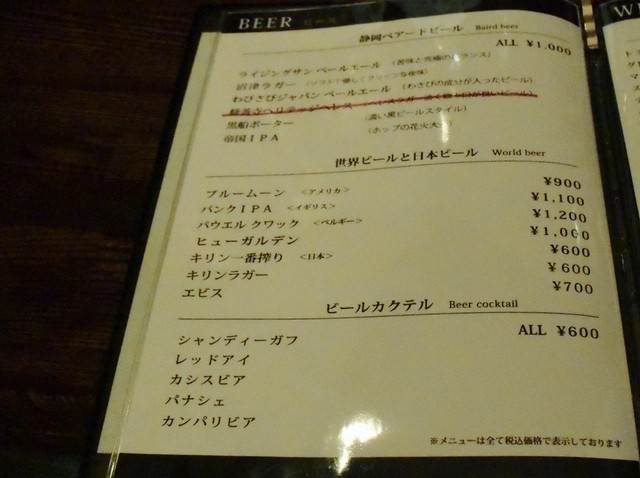 BEER ビール
静岡ベアードビール Baird beer
ALL ¥1,000
ライジングサン ペールエール (苦味と究極のバランス)
沼津ラガー
わびさびジャパン ペールエール (わさびの成分が入ったビール)
修善寺ヘリテッジヘレス
黒船ポーター (濃い黒ビールスタイル)
帝国IPA (ホップの花火大会)
世界ビールと日本ビール World beer
ブルームーン <アメリカ> ¥900
パンクIPA <イギリス> ¥1,100
パウエル クワック <ベルギー> ¥1,200
ヒューガルデン ¥1,000
キリン一番搾り <日本> ¥600
キリンラガー ¥600
エビス ¥700
ビールカクテル Beer cocktail
ALL ¥600
シャンディーガフ
レッドアイ
カシスビア
パナシェ
カンパリビア
※メニューは全て税込価格で表示しております